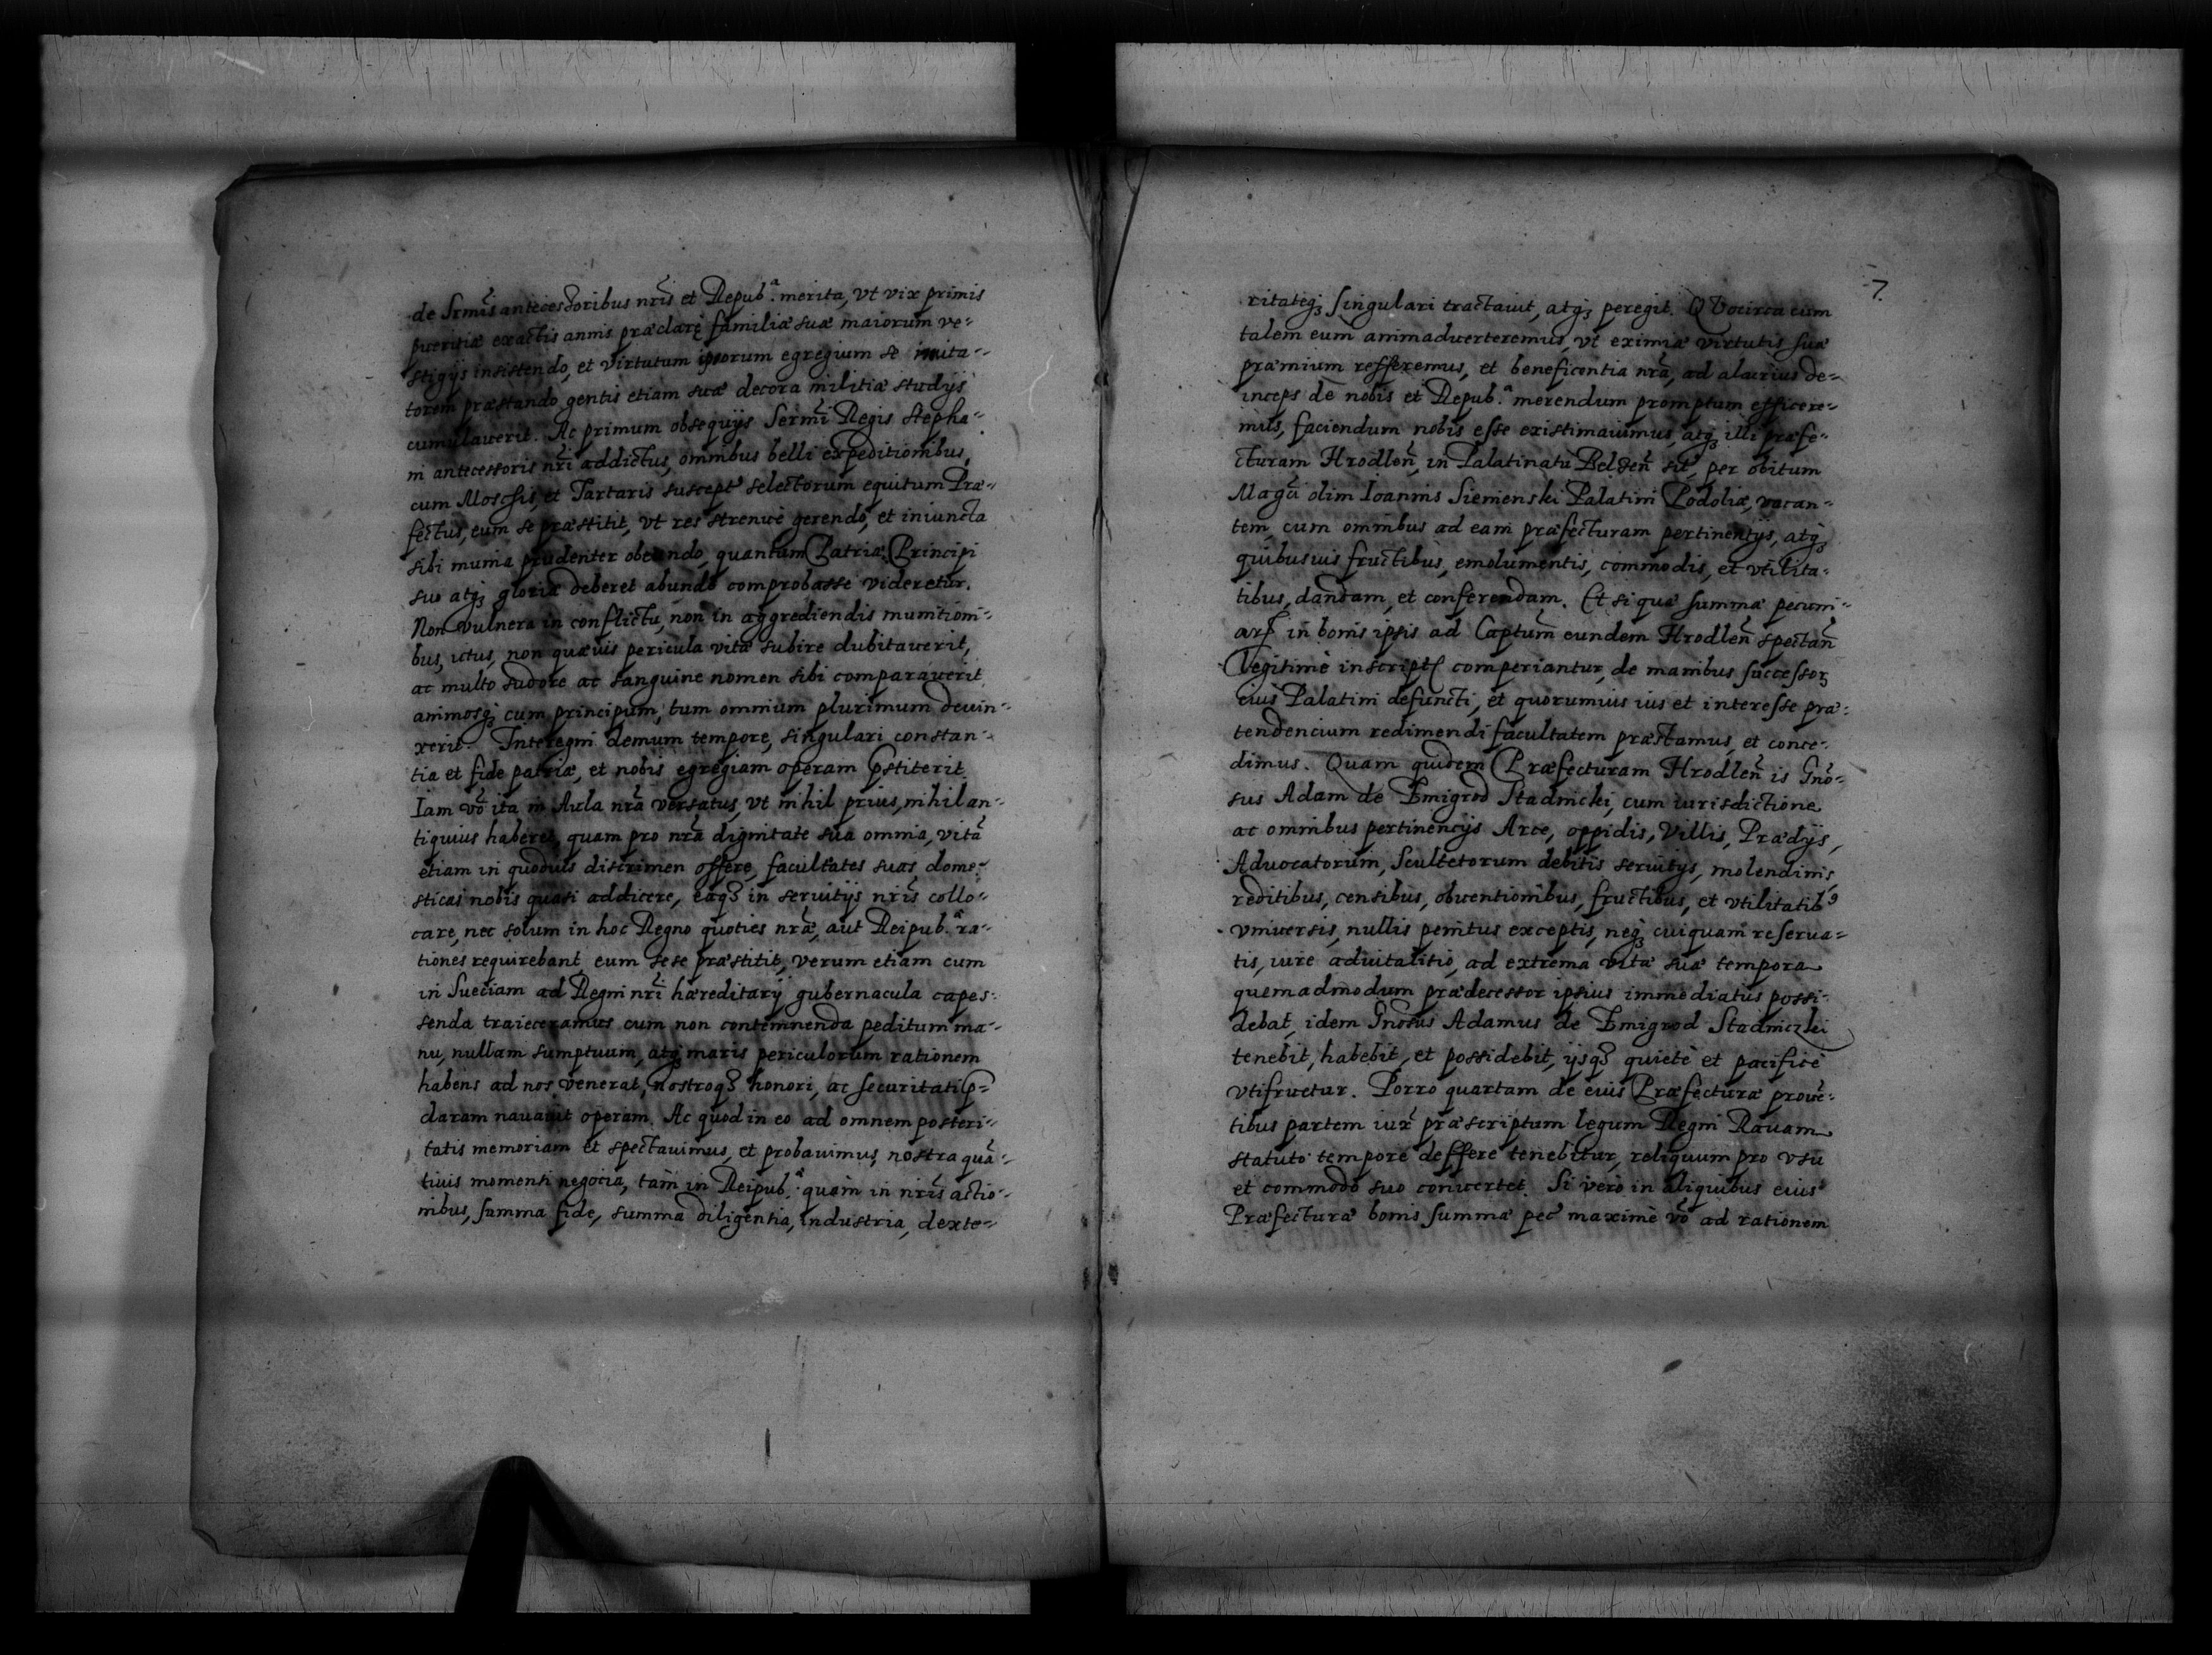 de Srmis antecessoribus nris et Repub.ª merita, vt vix primis
pueritiæ exactis annis præclarę familiæ suæ maiorum ve-
stigijs insistendo, et virtutum ipsorum egregium se imita-
torem præstando gentis etiam suæ decora militiæ studijs
cumulauerit. Ac primum obsequijs Sermi Regis Stepha-
ni antecessoris nri addictus, omnibus belli expeditionibus,
cum Moschis, et Tartaris suscept selectorum equitum Præ-
fectus, eum se præstitit, vt res strenuè gerendo, et iniuncta
sibi munia prudenter obeundo, quantum Patriæ Principi
suo atq; gloriæ deberet abundè comprobasse videretur.
Non vulnera in conflictu, non in aggrediendis munition-
bus, ictus, non quæuis pericula vitæ subire dubitauerit,
ac multo sudore ac sanguine nomen sibi comparauerit
animosq; cum principum, tum omnium plurimum deuin-
xerit. Interegni demum tempore, singulari constan-
tia et fide patriæ, et nobis egregiam operam pstiterit
Iam vo ita in Aula nra versatus, vt nihil prius, nihil an-
tiquius haberet, quam pro nra dignitate sua omnia, vitã
etiam in quoduis discrimen offere, facultates suas, dome-
sticas nobis quasi addicere, eaq; in seruitijs nris collo-
care, nec solum in hoc Regno quoties nræ, aut Reipub.ª ra-
tiones requirebant eum sese præstitit, verum etiam cum
in Sueciam ad Regni nri hæreditarij gubernacula capes-
senda traieceramus cum non contemnenda peditum ma-
nu, nullam sumptuum, atq; maris periculorum rationem
habens ad nos venerat, nostroq; honori, ac securitati p-
claram nauauit operam. Ac quod in eo ad omnem posteri-
tatis memoriam et spectauimus, et probauimus, nostra quã-
tiuis momenti negocia, tàm in Reipub.ª quàm in nris actio-
nibus, summa fide, summa diligentia, industria, dexte-
7.
ritateq; singulari tractauit, atq; peregit. QVocirca cum
talem eum animaduerteremus, vt eximiæ virtutis suæ
præmium refferemus, et beneficentia nra, ad alacrius de-
inceps de nobis et Repub.ª merendum promptum efficere-
mus, faciendum nobis esse existimauimus, atq; illi præfe-
cturam Hrodlen, in Palatinatu Belzen sit, per obitum
Magci olim Ioannis Sienienski Palatini Podoliæ, vacan-
tem, cum omnibus ad eam præfecturam pertinentijs, atq;
quibusuis fructibus, emolumentis, commodis, et vtilita-
tibus, dandam, et conferendam. Et si quæ summæ pecuni-
arp in bonis ipsis ad Captum eundem Hrodlen spectan
legitimè inscript comperiantur, de manibus successor;
eius Palatini defuncti, et quorumuis ius et interesse præ-
tendencium redimendi facultatem præstamus, et conce-
dimus. Quam quidem Præfecturam Hrodlen is Gno-
sus Adam de Zmigrod Stadnicki, cum iurisdictione
ac omnibus pertinencijs Arce, oppidis, Villis, Prædijs,
Aduocatorum, Scultetorum debitis seruitijs, molendinis,
reditibus, censibus, obuentionibus, fructibus, et vtilitatib9
vniuersis, nullis penitus exceptis, neq; cuiquam reserua-
tis, iure aduitalitio, ad extrema vitæ suæ tempora
quemadmodum prædecessor ipsius immediatus possi-
debat, idem Gnosus Adamus de Zmigrod Stadniczki
tenebit, habebit, et possidebit, ijsq; quietè et pacificè
vtifruetur. Porro quartam de eius Præfecturæ prouẽ-
tibus partem iux præscriptum legum Regni Rauam
statuto tempore deffere tenebitur, reliquum pro vsu
et commodo suo conuertet. Si verò in aliquibus eius
Præfecturæ bonis summæ pec maximè vo ad rationem